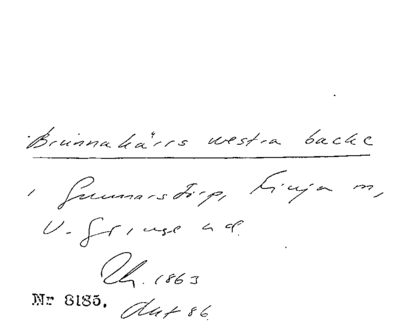 Brunnakärrs westra backe
i Gunnarstorp, Finja m,
V. Göinge hd.
1863
Nr 8185.
86